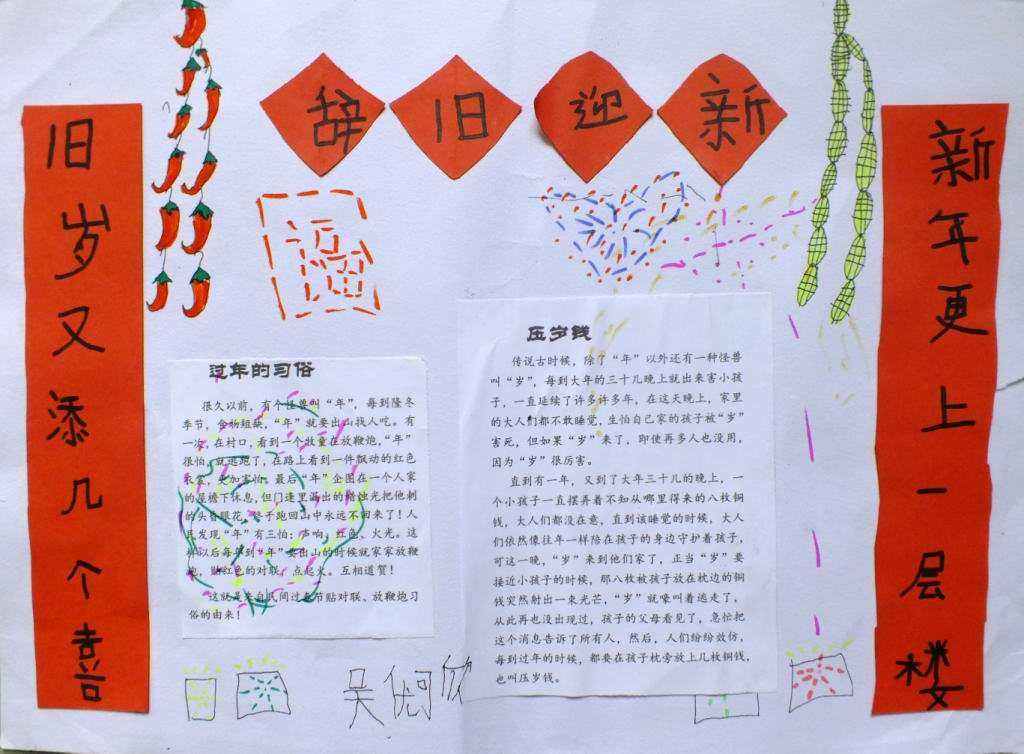 辞旧迎新
旧岁又添几个喜
新年更上一层楼
过年的习俗
很久以前，有个怪兽叫“年”，每到隆冬
季节，食物短缺，“年”就要出山找人吃。有
一次，在村口，看到一个牧童在放鞭炮，“年”
很怕，就逃跑了，在路上看到一件飘动的红色
衣裳，更加害怕。最后“年”企图在一个人家
的屋檐下休息，但门缝里漏出的蜡烛光把他刺
的头昏眼花，终于跑回山中永远不回来了！人
民发现“年”有三怕：声响，红色，火光。这
样以后每年到“年”要出山的时候就家家放鞭
炮，贴红色的对联，点起火。互相道贺！
这就是来自民间过春节贴对联、放鞭炮习
俗的由来！
压岁钱
传说古时候，除了“年”以外还有一种怪兽
叫“岁”，每到大年的三十儿晚上就出来害小孩
子，一直延续了许多许多年，在这天晚上，家里
的大人们都不敢睡觉，生怕自己家的孩子被“岁”
害死，但如果“岁”来了，即使再多人也没用，
因为“岁”很厉害。
直到有一年，又到了大年三十儿的晚上，一
个小孩子一直摆弄着不知从哪里得来的八枚铜
钱，大人们都没在意，直到该睡觉的时候，大人
们依然像往年一样陪在孩子的身边守护着孩子，
可这一晚，“岁”来到他们家了，正当“岁”要
接近小孩子的时候，那八枚被孩子放在枕边的铜
钱突然射出一束光芒，“岁”就嚎叫着逃走了，
从此再也没出现过，孩子的父母看见了，急忙把
这个消息告诉了所有人，然后，人们纷纷效仿，
每到过年的时候，都要在孩子枕旁放上几枚铜钱，
也叫压岁钱。
吴倪欣